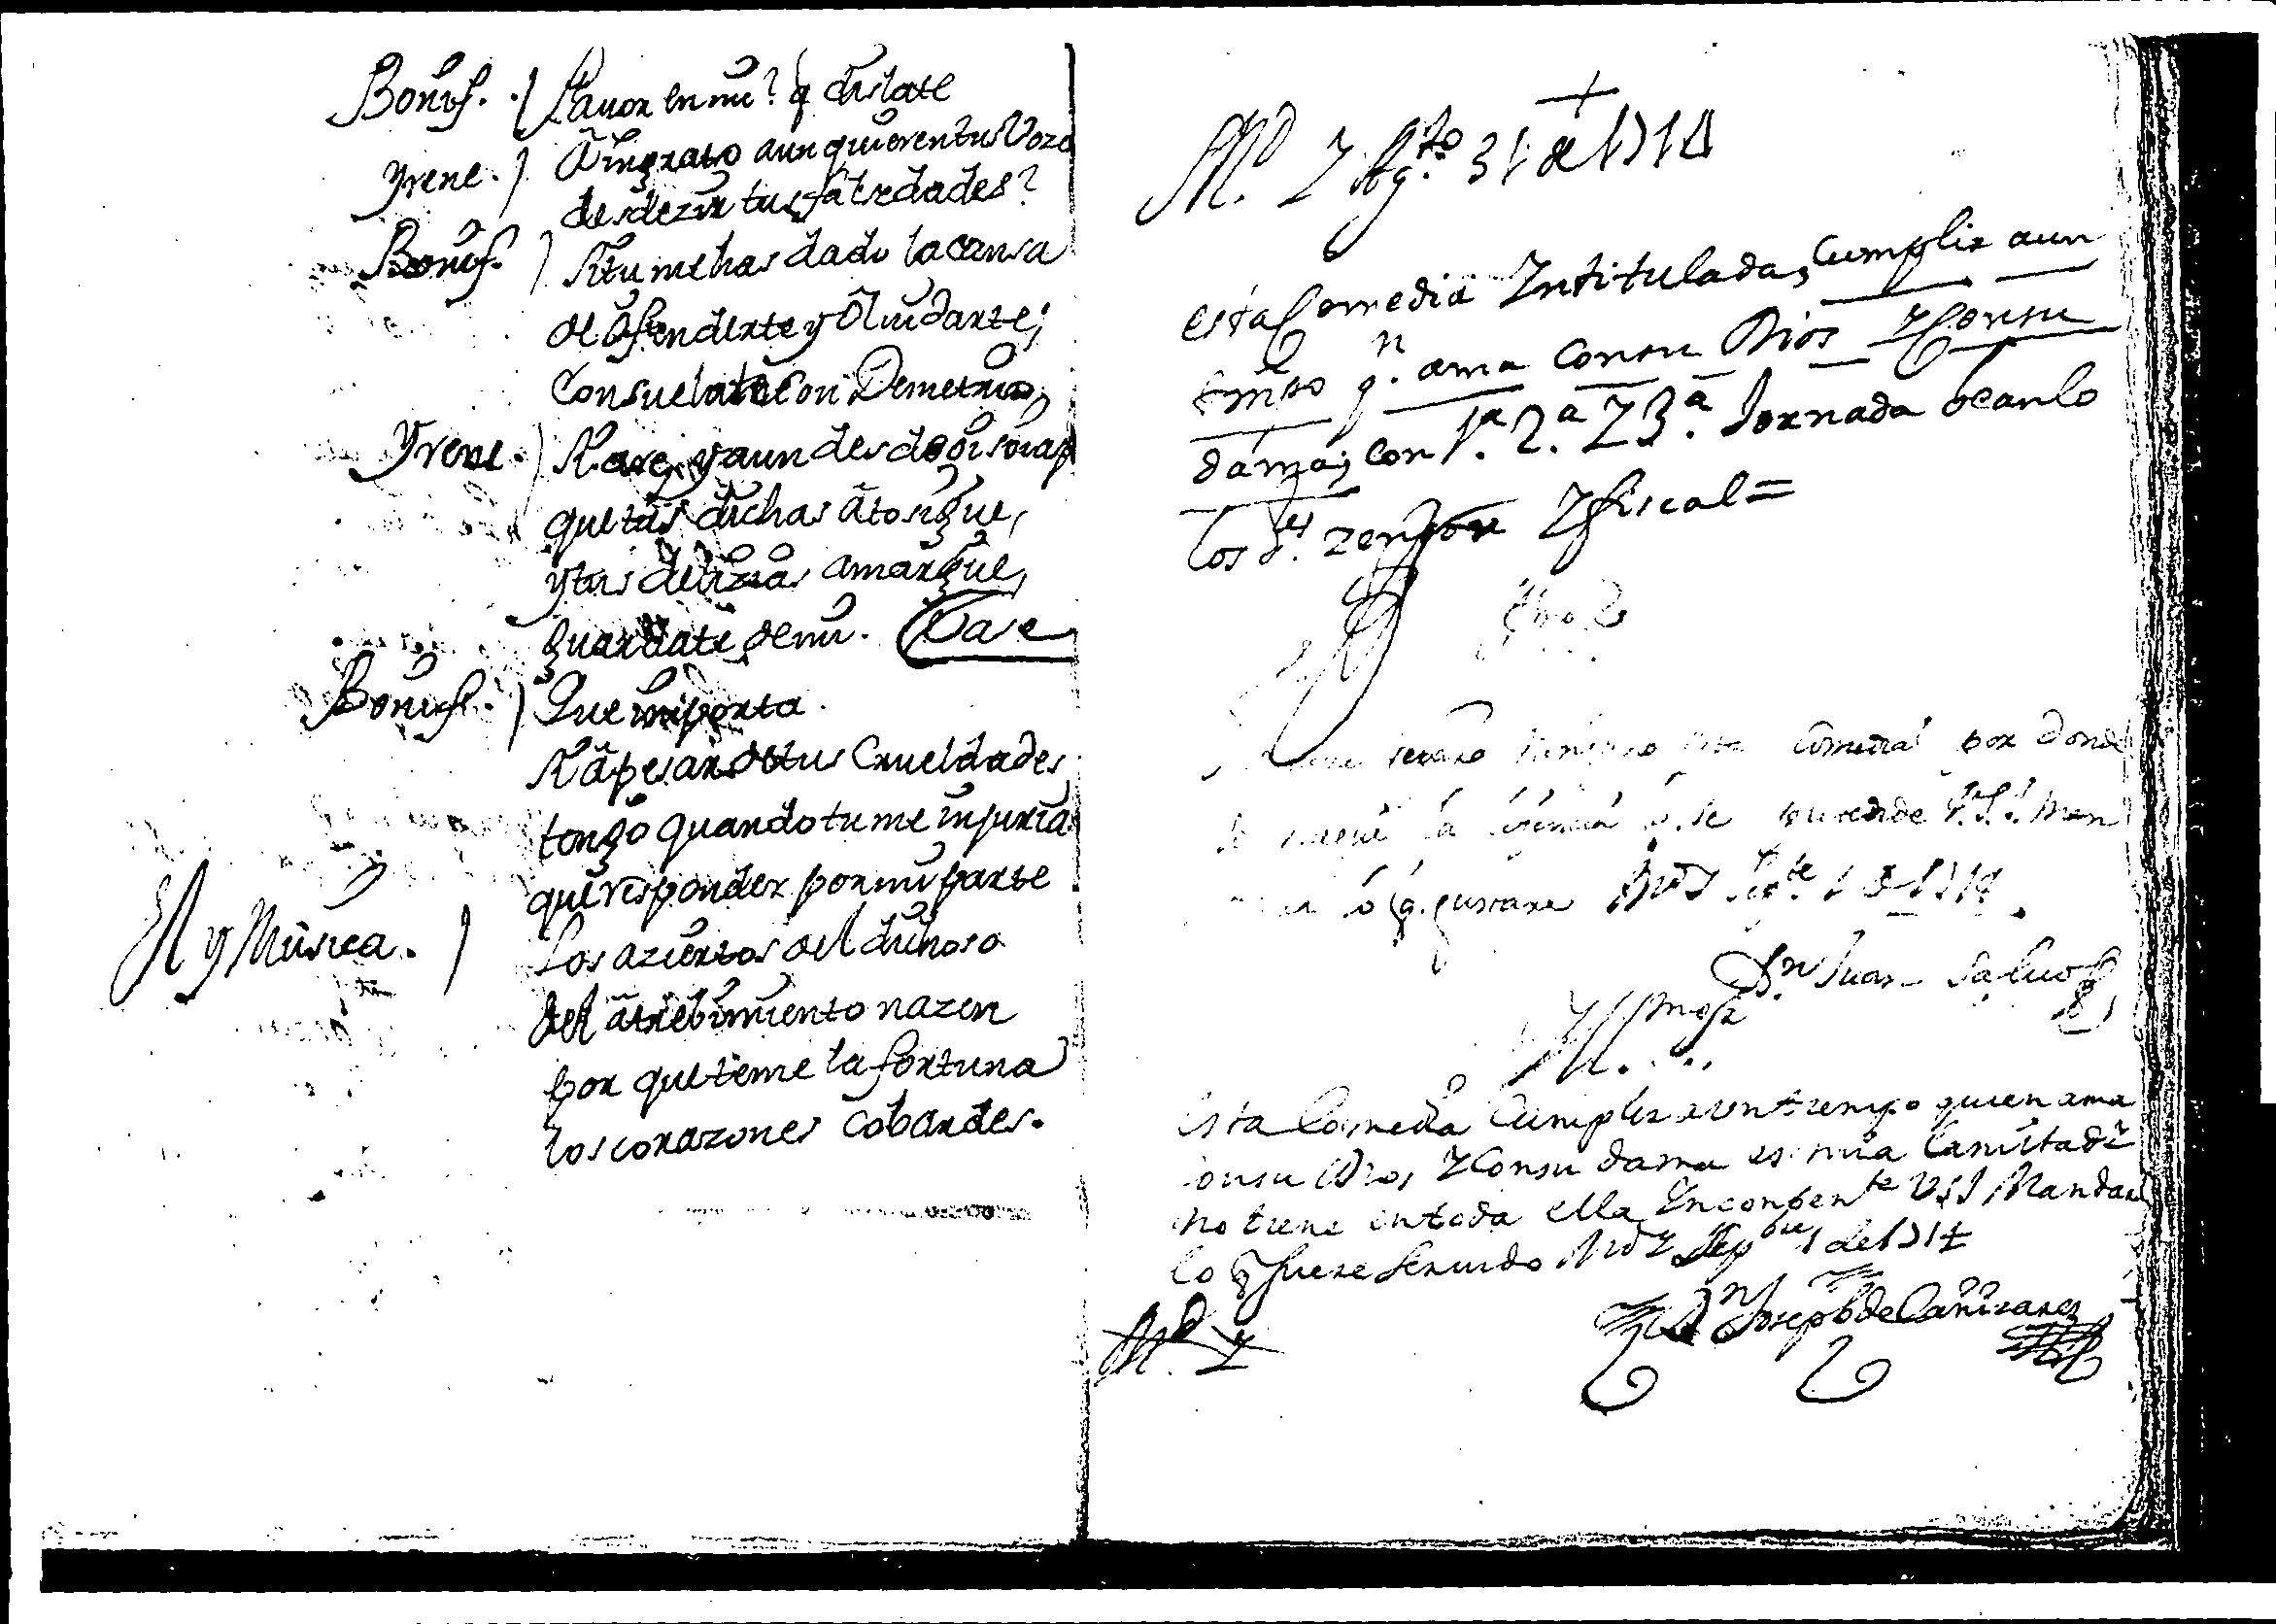 Bonif. / Pauor en mi? q dislate
Yrene. / Â ingrato aun quieren tus Voze
desdezir tus falzedades?
Bonif. / Si tu me has dado la causa
de ôfenderte y ôluidarte;
Consuelate Con Demetrio,
Yrene. / Si hare, y aun desde
que tus dichas âtosigue,
y tus delizias amargue,
guardate de mi. Vase
Bonif. / Que importa.
Si â pesar de tus Crueldades
tengo quando tu me injurias
que responder por mi parte
El y Musica. / Los aziertos del dichoso
del âtrebimiento nazen
por que teme la fortuna
los corazones cobardes.
M.d Y Ag.to 31 de 1714
esta Comedia Yntitulada, Cumplir a un
tmpo q.n ama Con su Dios Y Con su
dama; con 1.a 2.a Y 3.a Jornada Veanlo
los S.es Zensor Y fiscal =
esta Comedia por donde
Md Sep.te 1 de 1714.
D.n Juan Saluo
Esta Comedia Cumplir a un tiempo quien ama
con su Dios, Y Con su dama es mia
no tiene en toda ella Ynconben.te VSI Mandará
lo q fuere seruido Md Y Sep.bre 1 de 1714
D.n Joseph de Cañizares
M.d Y